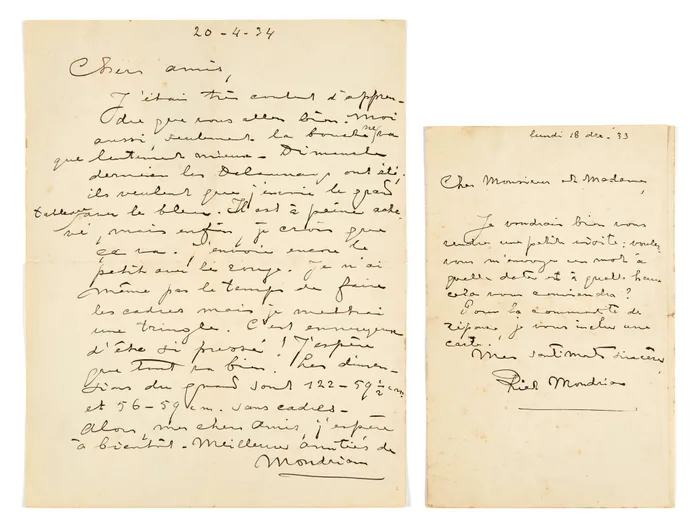 20-4-34
Chers amis,
J'étais très content d'appren-
dre que vous allez bien. Moi
aussi, seulement la bouche ne va
que lentement mieux. Dimanche
dernier les Delaunay ont été,
ils veulent que j'envoie le grand
tableau avec le bleu. Il est à peine ache-
vé, mais enfin, je crois que
ça va. J'envoie encore le
petit avec le rouge. Je n'ai
même pas le temps de faire
les cadres mais je mettrai
une tringle. C'est ennuyeux
d'être si pressé! J'espère
que tout va bien. Les dimen-
sions du grand sont 122-59½ cm
et 56-59 cm. sans cadres-
Alors, mes chers amis, j'espère
à bientôt. Meilleures amitiés de
Mondrian
lundi 18 dec. '33
Cher Monsieur et Madame,
Je voudrais bien vous
rendre une petite visite; voulez
vous m'envoyer un mot à
quelle date et à quelle heure
cela vous conviendra?
Pour la commodité de
réponse, je vous inclus une
carte.
Mes sentiments sincères,
Piet Mondrian